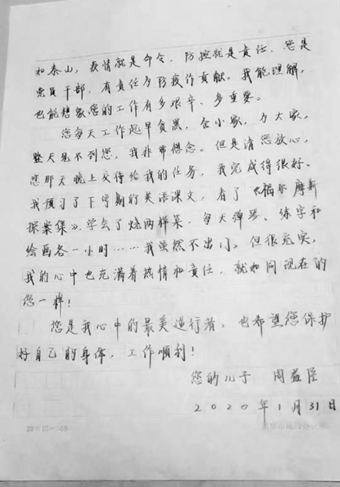 如泰山，疫情就是命令，防控就是责任，您是
党员干部，有责任为防疫作贡献。我能理解，
也能想象您的工作有多艰辛、多重要。
您每天工作起早贪黑，舍小家，为大家，
整天见不到您，我非常想念。但是请您放心，
您那天晚上交待给我的任务，我完成得很好。
我预习了下学期的英语课文，看了《福尔摩斯
探案集》，学会了烧两样菜，每天弹琴、练字和
绘画各一小时……我虽然不出门，但很充实，
我的心中也充满着热情和责任，就如同现在的
您一样！
您是我心中的最美逆行者，也希望您保护
好自己的身体，工作顺利！
您的儿子 周益臣
2020年1月31日